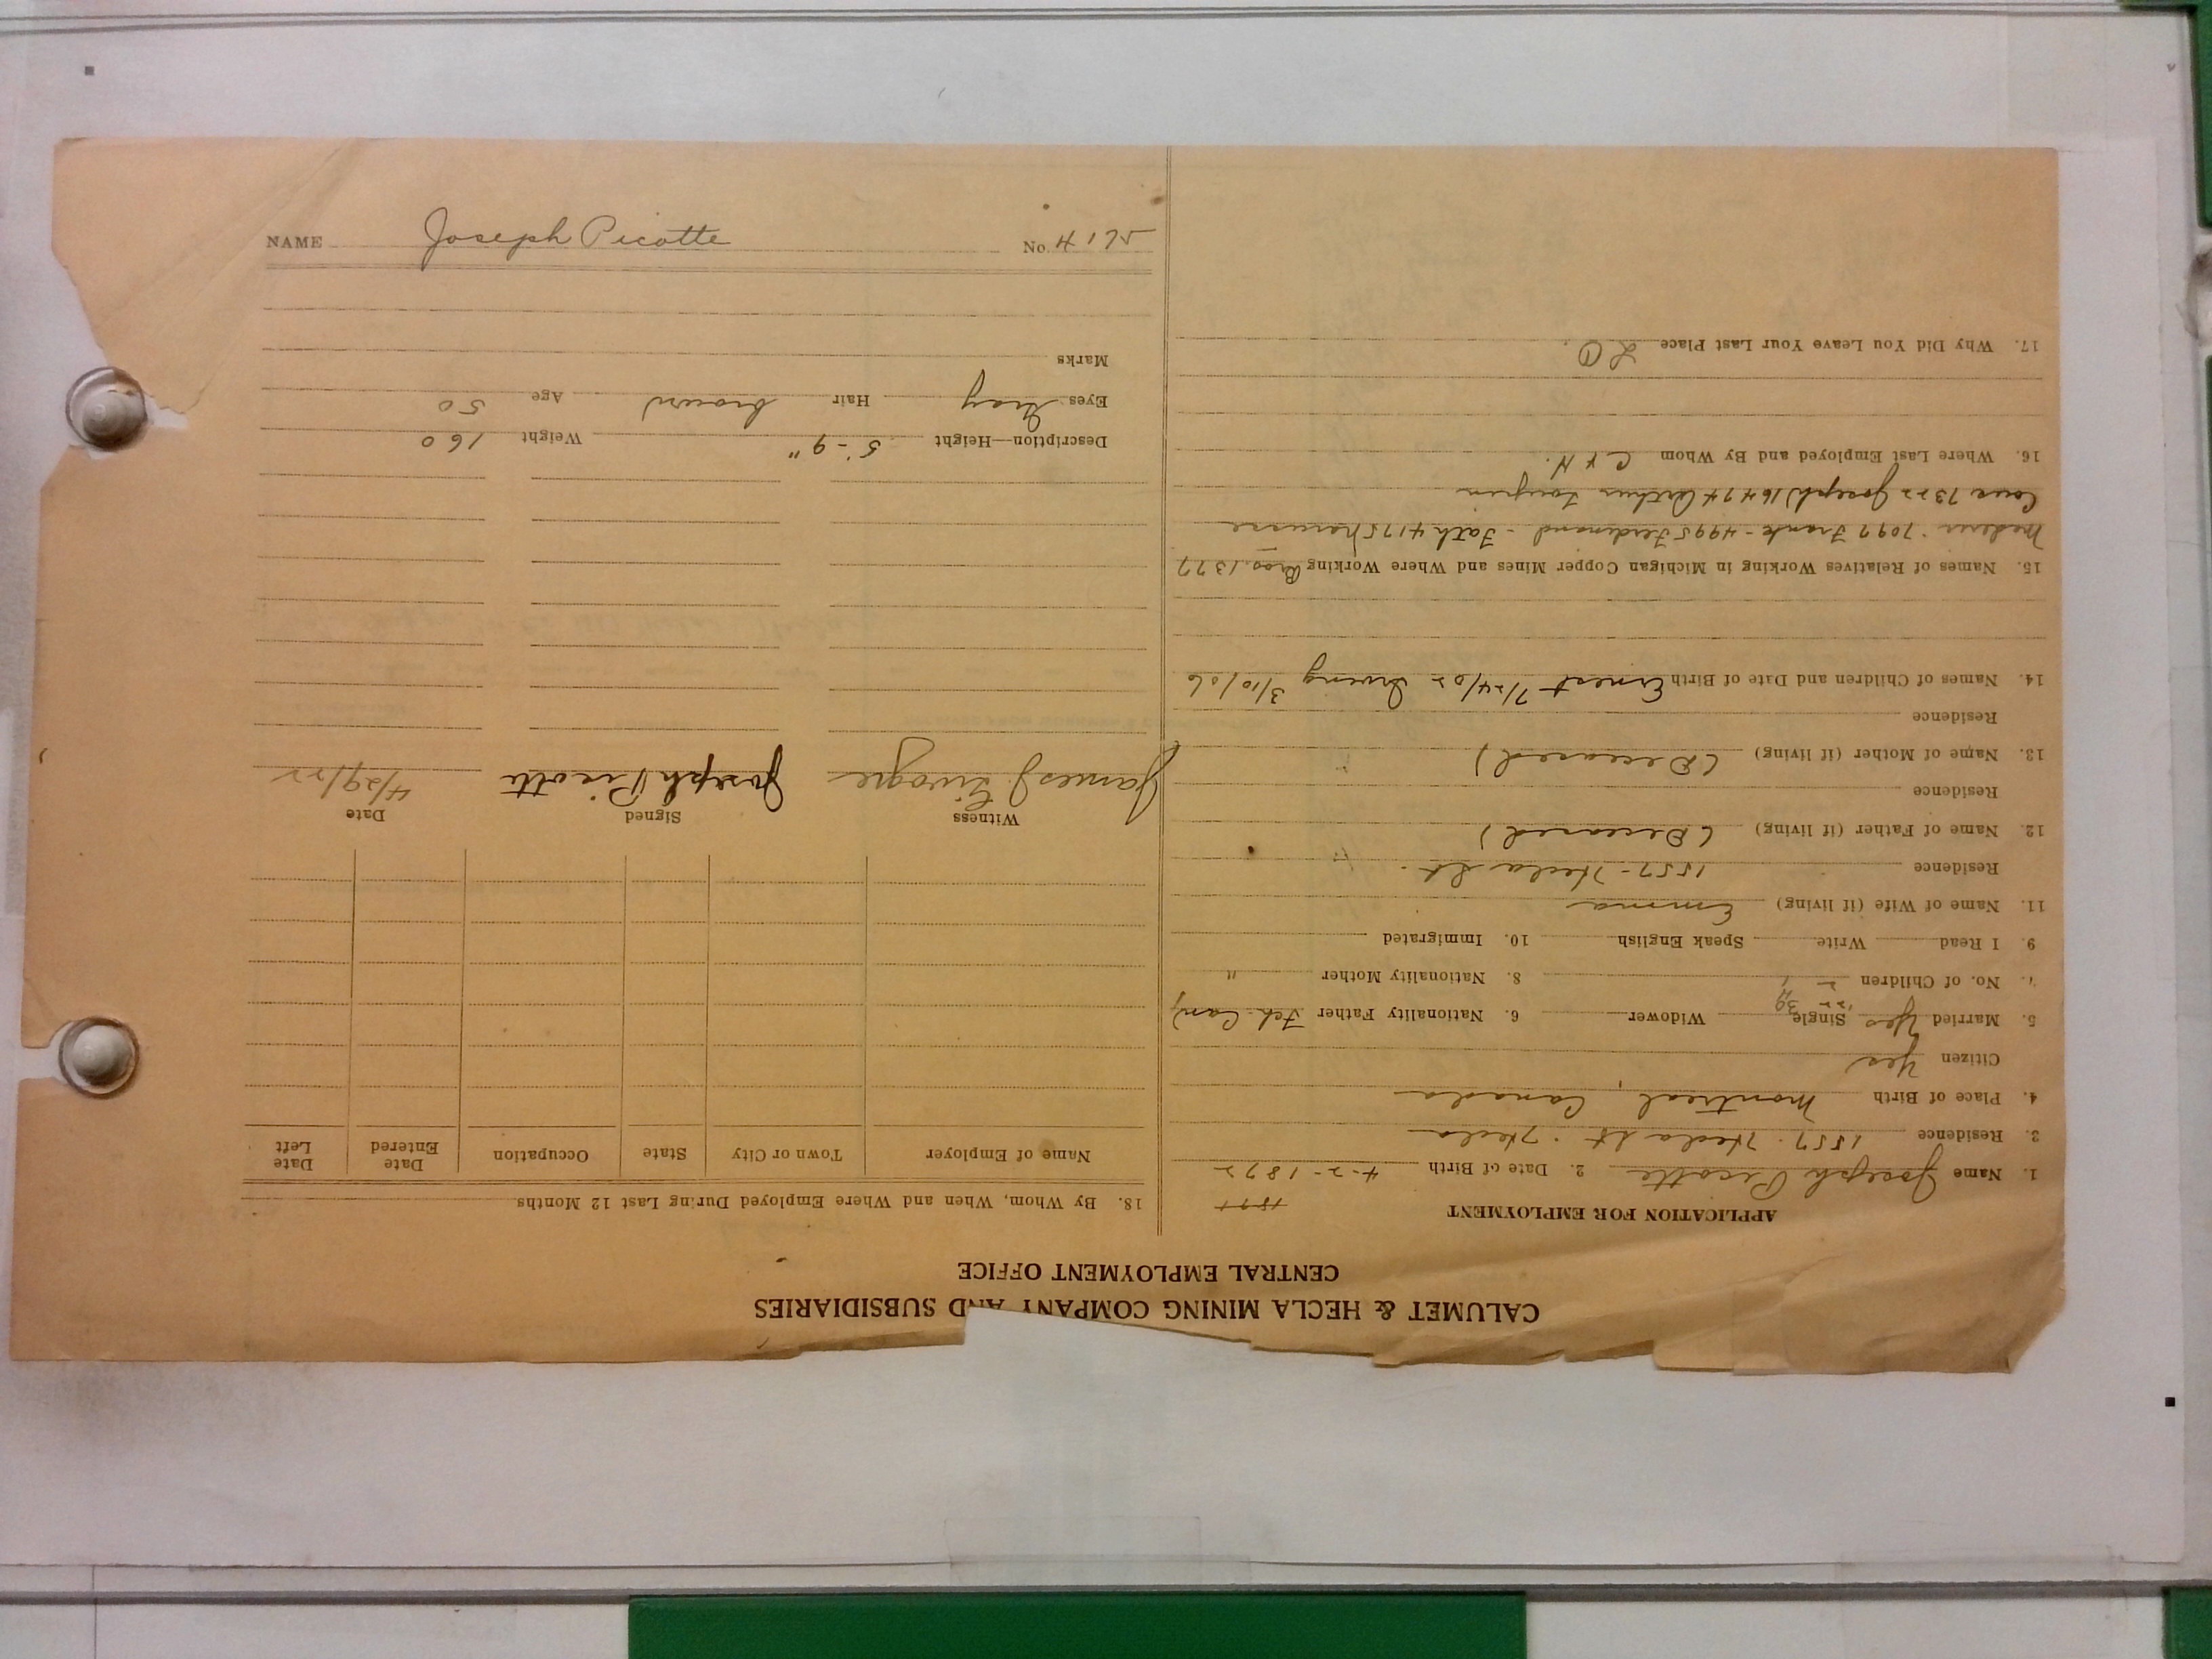 CALUMET & HECLA MINING COMPANY AND SUBSIDIARIES
CENTRAL EMPLOYMENT OFFICE
APPLICATION FOR EMPLOYMENT
1. Name Joseph Picotte 2. Date of Birth 4-2-1872
3. Residence 1557. Hecla St. Hecla
4. Place of Birth Montreal, Canada
Citizen Yes
5. Married Yes Single Widower 6. Nationality Father Fch. Can)
7. No. of Children 2 8. Nationality Mother "
9. I Read Write Speak English 10. Immigrated
11. Name of Wife (if living) Emma
Residence 1557-Hecla St.
12. Name of Father (if living) (Deceased)
Residence
13. Name of Mother (if living) (Deceased)
Residence
14. Names of Children and Date of Birth Ernest 7/24/02 Irving 3/10/06
15. Names of Relatives Working in Michigan Copper Mines and Where Working Bros. 1377
7097 Frank - 4995 Ferdinand - Fath 4175
Cous 7322 Joseph) 16474 Arthur
16. Where Last Employed and By Whom C & H.
17. Why Did You Leave Your Last Place LO.
18. By Whom, When and Where Employed During Last 12 Months
Name of Employer Town or City State Occupation Date Entered Date Left
Witness Signed Date
James J Joseph Picotte 4/29/22
Description—Height 5'-9" Weight 160
Eyes Gray Hair brown Age 50
Marks
NAME Joseph Picotte No.